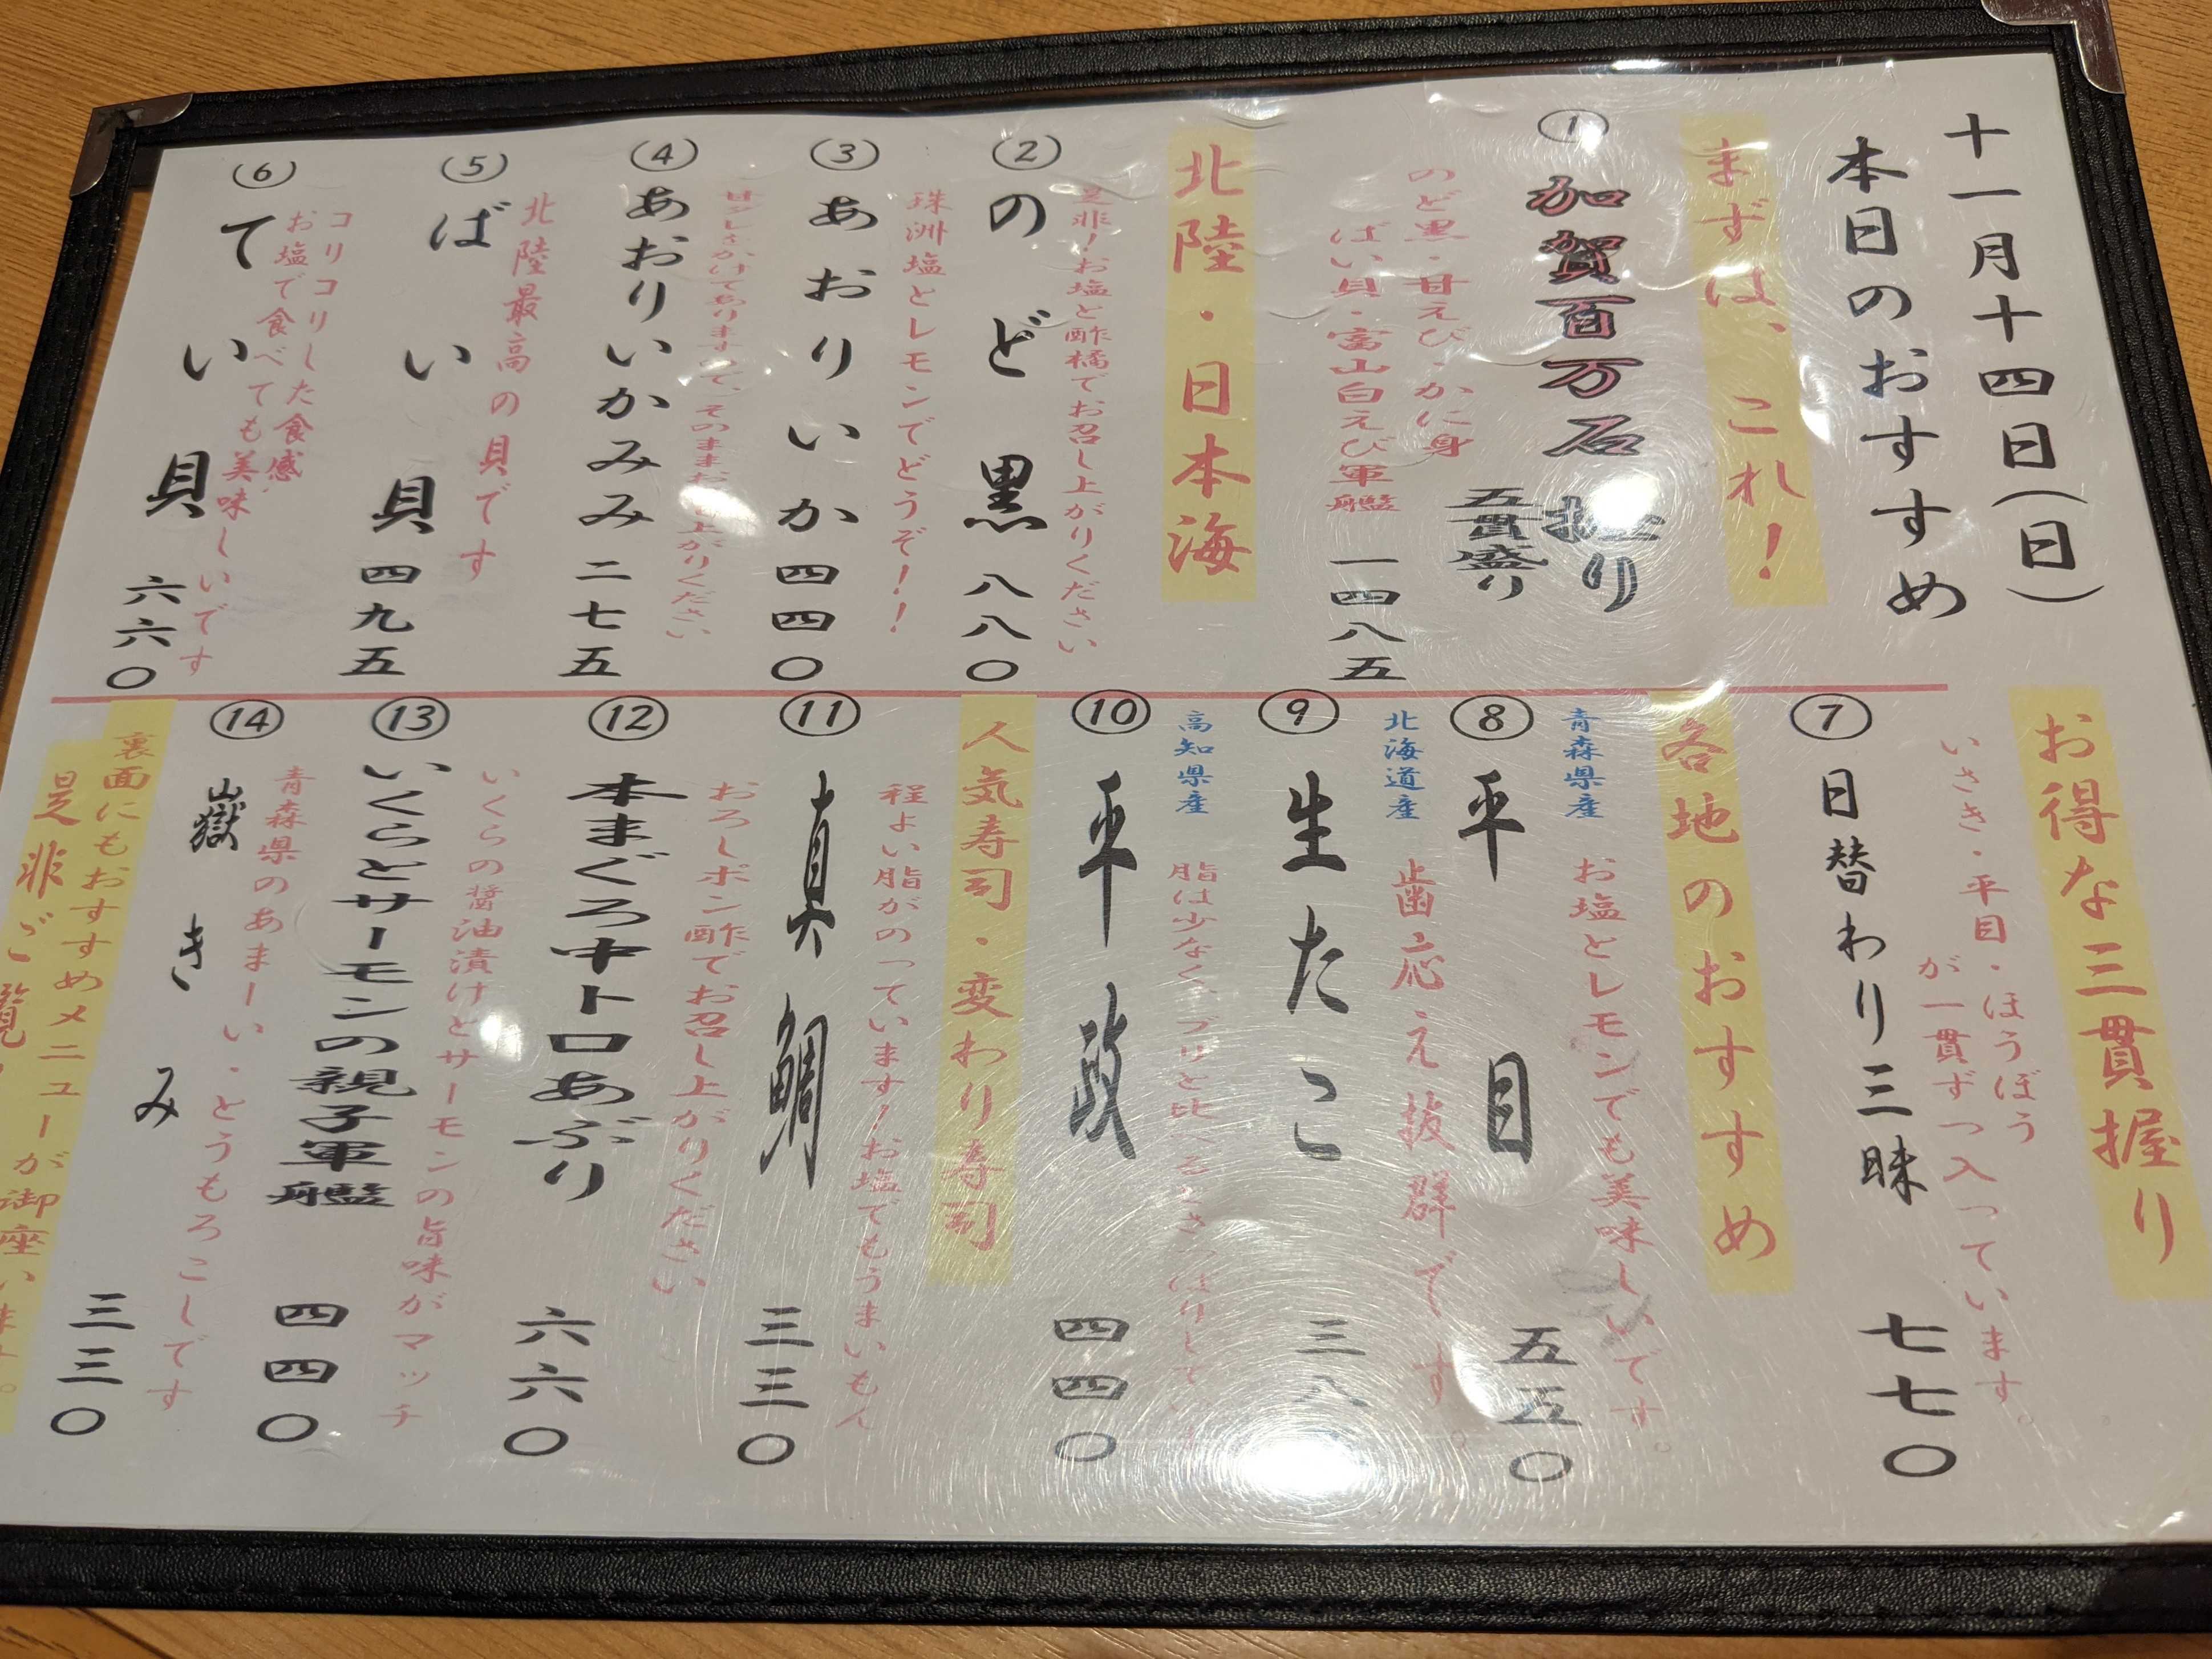 十一月十四日(日)
本日のおすすめ
まずは、これ!
① 加賀百万石 握り
五貫盛り
のど黒・甘えび・かに身
ばい貝・富山白えび軍艦
一四八五
北陸・日本海
是非!お塩と酢橘でお召し上がりください
② のど黒 八八〇
珠洲塩とレモンでどうぞ!!
③ あおりいか 四四〇
甘ダレをかけてありますので、そのままお召し上がりください
④ あおりいかみみ 二七五
北陸最高の貝です
⑤ ばい貝 四九五
コリコリした食感、
お塩で食べても美味しいです
⑥ てい貝 六六〇
お得な三貫握り
いさき・平目・ほうぼう
が一貫ずつ入っています。
⑦ 日替わり三昧 七七〇
各地のおすすめ
青森県産 お塩とレモンでも美味しいです。
⑧ 平目 五五〇
北海道産 歯応え抜群です。
⑨ 生たこ 三八
高知県産 脂は少なく、ブリと比べるとさっぱりしています
⑩ 平政 四四〇
人気寿司・変わり寿司
程よい脂がのっています!お塩でもうまいもん
⑪ 真鯛 三三〇
おろしポン酢でお召し上がりください
⑫ 本まぐろ中トロあぶり 六六〇
いくらの醤油漬けとサーモンの旨味がマッチ
⑬ いくらとサーモンの親子軍艦 四四〇
青森県のあまーい・とうもろこしです
⑭ 嶽きみ 三三〇
裏面にもおすすめメニューが御座います。
是非ご覧